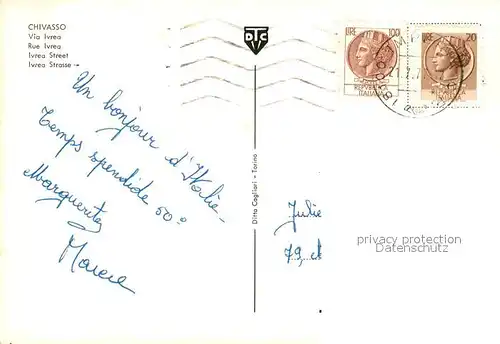 CHIVASSO
Via Ivrea
Rue Ivrea
Ivrea Street
Ivrea Strasse →
DTC
LIRE 100
REPUBBLICA
ITALIANA
LIRE 20
Un bonjour d'Italie
Temps splendide 60°
Marguerite
Ditta Cagliari - Torino
Julie
79, et
privacy protection
Datenschutz